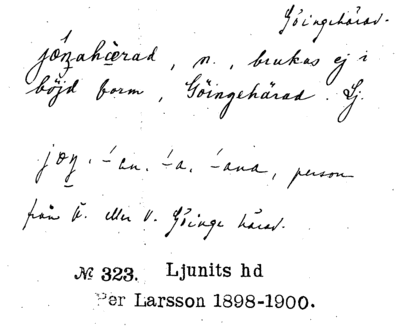 Göingehärad.
jöŋahärad, n., brukas ej i
böjd form, Göingehärad. Lj.
jöŋ. -en. -a. -ana, person
från Ö. eller V. Göinge härad.
№ 323. Ljunits hd
Per Larsson 1898-1900.